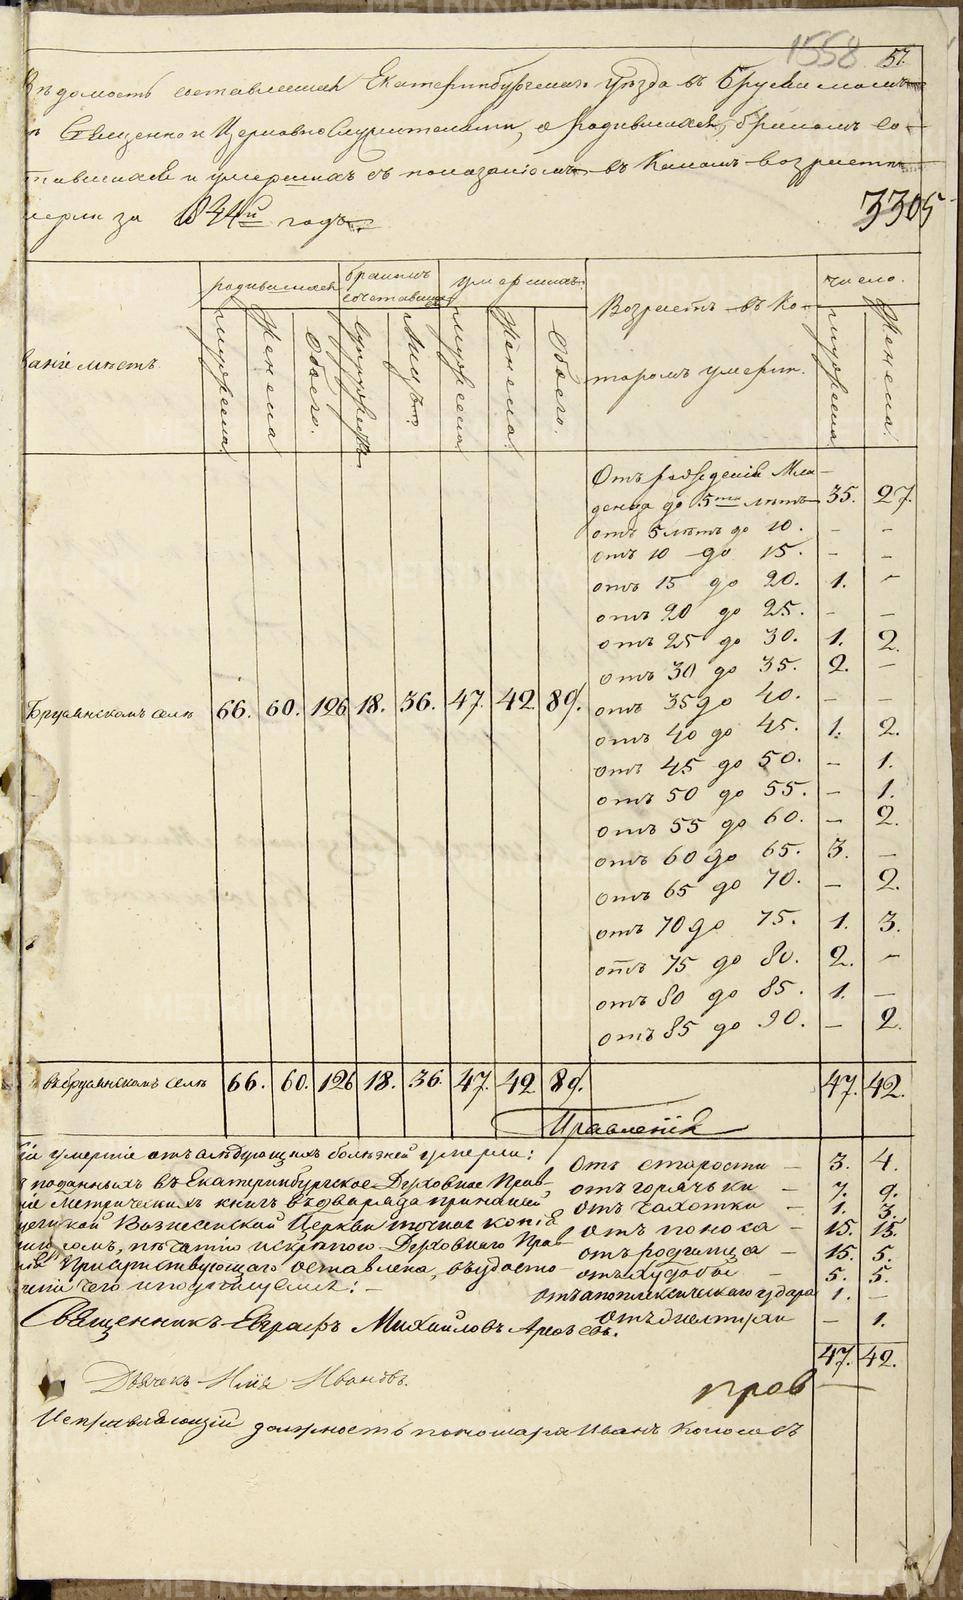 1558 57.
Вѣдомость составленная Екатеринбургскаго уѣзда въ Бруснянскомъ
Священно и Церковно Служителями, о родившихся, бракомъ со-
тавшихся и умершихъ съ показаніемъ въ какомъ возрастѣ
мерли за 1841й годъ.
3305
родившихся бракомъ сочетавшихся умершихъ Возрастъ въ ко- число.
ваніе мѣстъ мужеска Женска Обоего. Супружествъ Лицъ мужеска Женска Обоего. торомъ умерли. мужеска Женска
Отъ рожденія Мла-
денца до 5ти лѣтъ 35. 27.
отъ 5 лѣтъ до 10. - -
отъ 10 до 15. - -
отъ 15 до 20. 1. -
отъ 20 до 25. - -
отъ 25 до 30. 1. 2.
отъ 30 до 35. 2. -
отъ 35 до 40. - -
Бруснянскомъ селѣ 66. 60. 126 18. 36. 47. 42 89.
отъ 40 до 45. 1. 2.
отъ 45 до 50. - 1.
отъ 50 до 55. - 1.
отъ 55 до 60. - 2.
отъ 60 до 65. 3. -
отъ 65 до 70. - 2.
отъ 70 до 75. 1. 3.
отъ 75 до 80. 2. -
отъ 80 до 85. 1. -
отъ 85 до 90. - 2.
въ Бруснянскомъ селѣ 66. 60. 126 18. 36. 47. 42 89. 47. 42.
Правленія
умертіе отъ слѣдующихъ болѣзней умерли: Отъ старости - 3. 4.
поданныхъ въ Екатеринбургское Духовное Прав отъ горячьки - 7. 9.
Метрическихъ книгъ отъ чахотки - 1. 3.
Вознесенской Церкви точная копія отъ поноса - 15. 15.
печатію Духовнаго Прав отъ родимца - 15. 5.
Присутствующаго оставлена, въ удосто- отъ худобы - 5. 5.
чего отъ апоплексическаго удара 1. -
Священникъ Евграфъ Михайловъ отъ - 1.
47. 42.
Дьячекъ Илія Ивановъ.
пров
Исправляющій должность пономаря Иванъ
METRIKI.GASO-URAL.RU